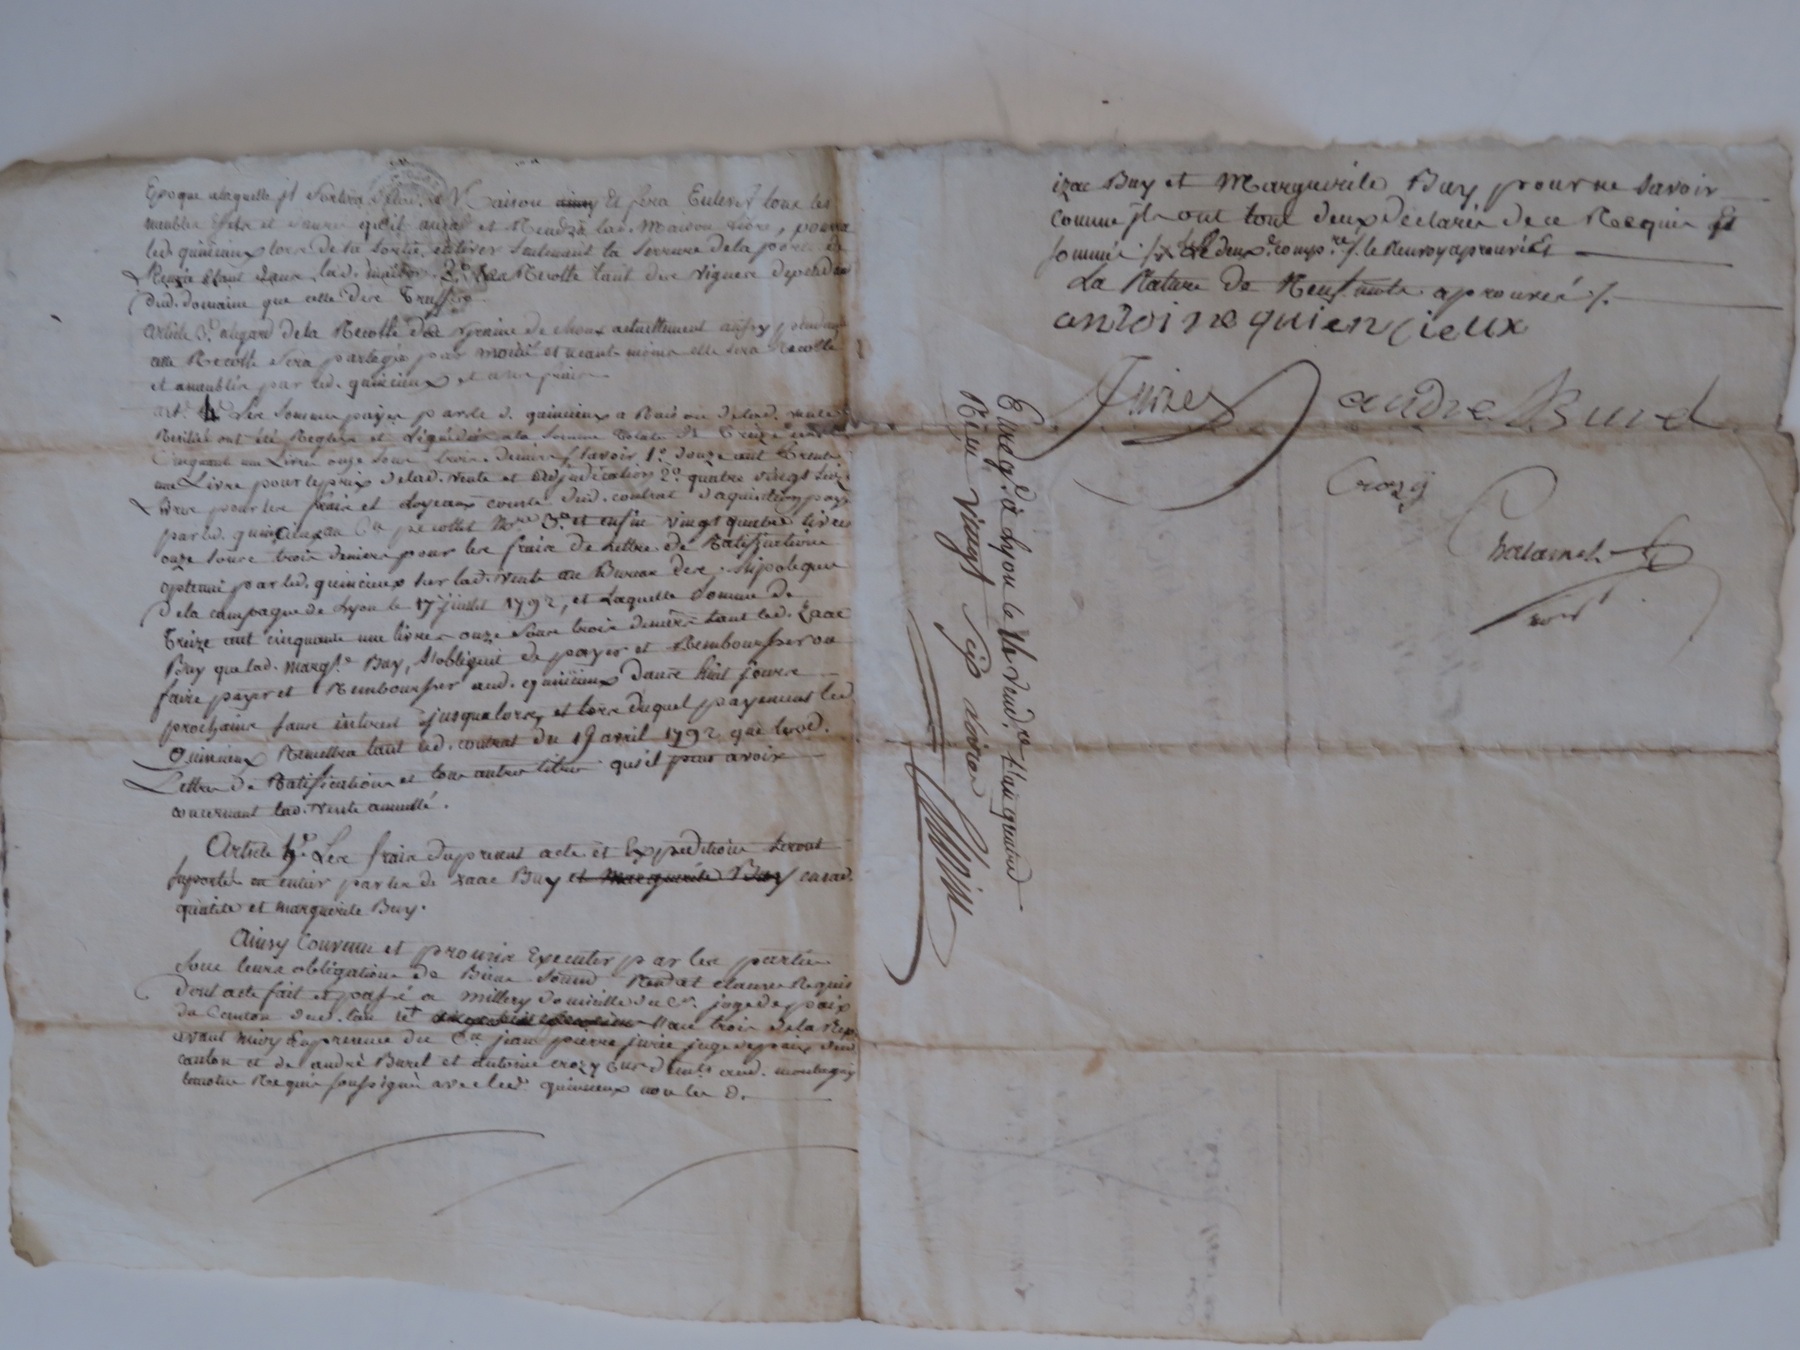 Epoque alaquelle jl Sortira de lad. Maison et fera Enlever tous les
meubles Effets et qu'il aura et Rendra lad. Maison libre, pourra
led. quincieux lors de sa sortie enlever seulement la serrure de la porte
étant dans lad. maison. 2º. La Recolte tant des vignes dependan
dud. domaine que celle des Truffes
Article 3º. alegard de la Recolte de graine de choux actuellement
cette Recolte Sera partagée par moitié et neant moins elle sera Recolte
et par led. quincieux et
art. 4º Les sommes payés par le d. quincieux a Raison de lad. vente
Resilié ont été Reglées et liquidées a la somme totale de Treize cent
Cinquante une Livres onze sous trois deniers Savoir 1º. douze cent trente
une Livre pour le prix de lad. vente et adjudication 2º. quatre vingt seize
Livres pour les frais et loyeaux couts dud. contrat d'aquisition payés
par led. quincieux au Cen 3º. et enfin vingt quatre livres
onze sous trois deniers pour les frais de lettres de Ratification
optenu par led. quincieux sur lad. vente au Bureau des hipoteques
de la campagne de Lyon le 17 juillet 1792, et Laquelle somme de
Treize cent cinquante une livres onze sous trois deniers tant led. Izaac
Bay que lad. margte Bay, s'obligent de payer et Rembourser ou
faire payer et Rembourser aud. quincieux dans huit jours
prochains sans interest jusqualors, et lors duquel payement led.
Quincieux Remettra tant led. contrat du 19 avril 1792 que lesd.
Lettres de Ratification et tous autres titres qu'il peut avoir
concernant lad. vente annullé.
Article 5º. Les frais du present acte et Expedition seront
suportés en entier par les de Izaac Bay et Marguerite Bay en sad.
qualité et marguerite Bay.
Ainsy Convenu et promis Executer par les parties
sous leurs obligations de Biens Renon et clauses Requis
dont acte fait et passé a Millery domicille du Cen. juge de paix
du Canton dud. lieu Let l'an trois de la Rep.
avant midy En presence du Cen jean pierre juge de paix dud
canton et de andré Burel et Antoine crozy aud. montagny
temoins Requis soussignés avec led. quincieux non les d.
izac Bay et Marguerite Bay pour ne savoir
comme jls ont tous deux déclarés de ce Requis Et
sommé les deux. comp.res le Renvoy aprouvé
La Rature de Neuf mots aprouvée
antoine quiencieux
andre Burel
Crozy
Chalamel
Enregé. à Lyon le Vend.re l'an quatre
Reçu vingt six livres